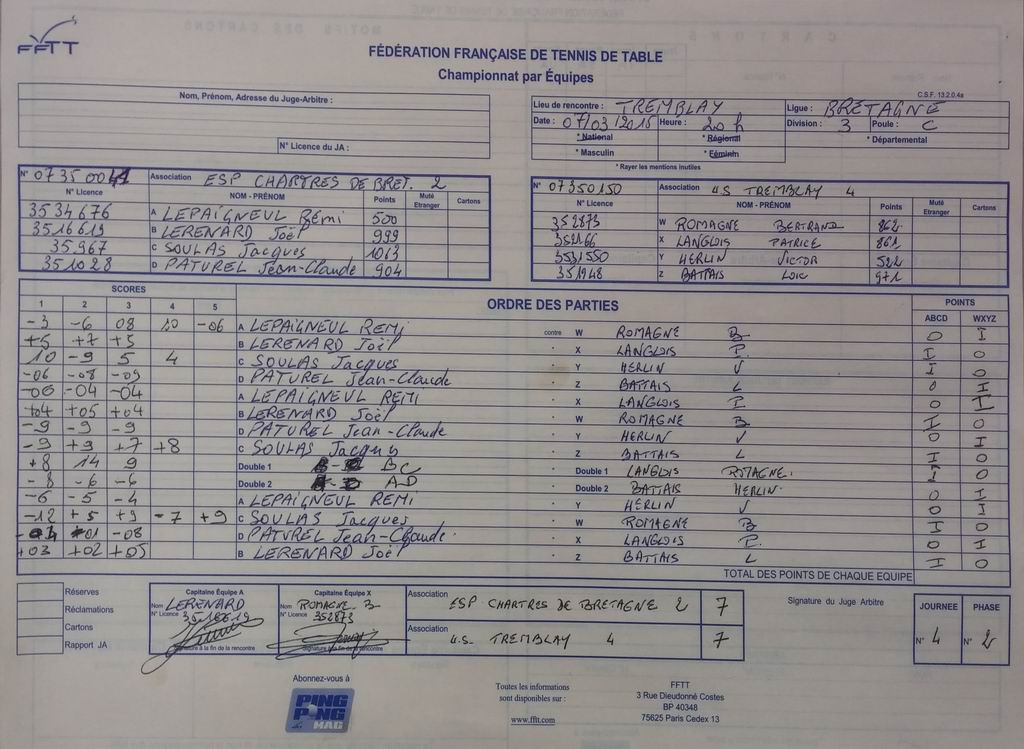 FFTT
FÉDÉRATION FRANÇAISE DE TENNIS DE TABLE
Championnat par Équipes
C.S.F. 13.2.0.4a
Nom, Prénom, Adresse du Juge-Arbitre :
N° Licence du JA :
Lieu de rencontre : TREMBLAY Ligue : BRETAGNE
Date : 07/03/2015 Heure : 20 h Division : 3 Poule : C
* National * Régional * Départemental
* Masculin * Féminin
* Rayer les mentions inutiles
N° 07350041 Association ESP CHARTRES DE BRET. 2
N° Licence NOM - PRÉNOM Points Muté Etranger Cartons
3534676 A LEPAIGNEUL Rémi 500
3516619 B LERENARD Joël 999
35967 C SOULAS Jacques 1063
351028 D PATUREL Jean-Claude 904
N° 07350150 Association U.S TREMBLAY 4
N° Licence NOM - PRÉNOM Points Muté Etranger Cartons
352873 W ROMAGNE BERTRAND 862
X LANGLOIS PATRICE 861
3531550 Y HERLIN VICTOR 522
351948 Z BATTAIS LOIC 971
SCORES ORDRE DES PARTIES POINTS
1 2 3 4 5 ABCD WXYZ
-3 -6 08 10 -06 A LEPAIGNEUL REMI contre W ROMAGNE B 0 I
+5 +7 +5 B LERENARD Joël X LANGLOIS P. I 0
10 -9 5 4 C SOULAS Jacques Y HERLIN V I 0
-06 -08 -09 D PATUREL Jean-Claude Z BATTAIS L 0 I
-06 -04 -04 A LEPAIGNEUL REMI X LANGLOIS P 0 I
+04 +05 +04 B LERENARD Joël W ROMAGNE B I 0
-9 -9 -9 D PATUREL Jean-Claude Y HERLIN V 0 I
-9 +9 +7 +8 C SOULAS Jacques Z BATTAIS L I 0
+8 14 9 Double 1 BC Double 1 LANGLOIS ROMAGNE. 1 0
-8 -6 -6 Double 2 AD Double 2 BATTAIS HERLIN. 0 I
-6 -5 -4 A LEPAIGNEUL REMI Y HERLIN V 0 I
-12 +5 +9 -7 +9 C SOULAS Jacques W ROMAGNE B I 0
-01 -08 D PATUREL Jean-Claude X LANGLOIS P. 0 I
+03 +02 +05 B LERENARD Joël Z BATTAIS L I 0
TOTAL DES POINTS DE CHAQUE EQUIPE
Réserves
Réclamations
Cartons
Rapport JA
Capitaine Équipe A
Nom LERENARD
N° Licence 3516619
Signature à la fin de la rencontre
Capitaine Équipe X
Nom ROMAGNE B
N° Licence 352873
Signature à la fin de la rencontre
Association ESP CHARTRES DE BRETAGNE 2 7
Association U.S. TREMBLAY 4 7
Signature du Juge Arbitre
JOURNEE PHASE
N° 4 N° 2
Abonnez-vous à
PING PONG MAG
Toutes les informations
sont disponibles sur :
www.fftt.com
FFTT
3 Rue Dieudonné Costes
BP 40348
75625 Paris Cedex 13